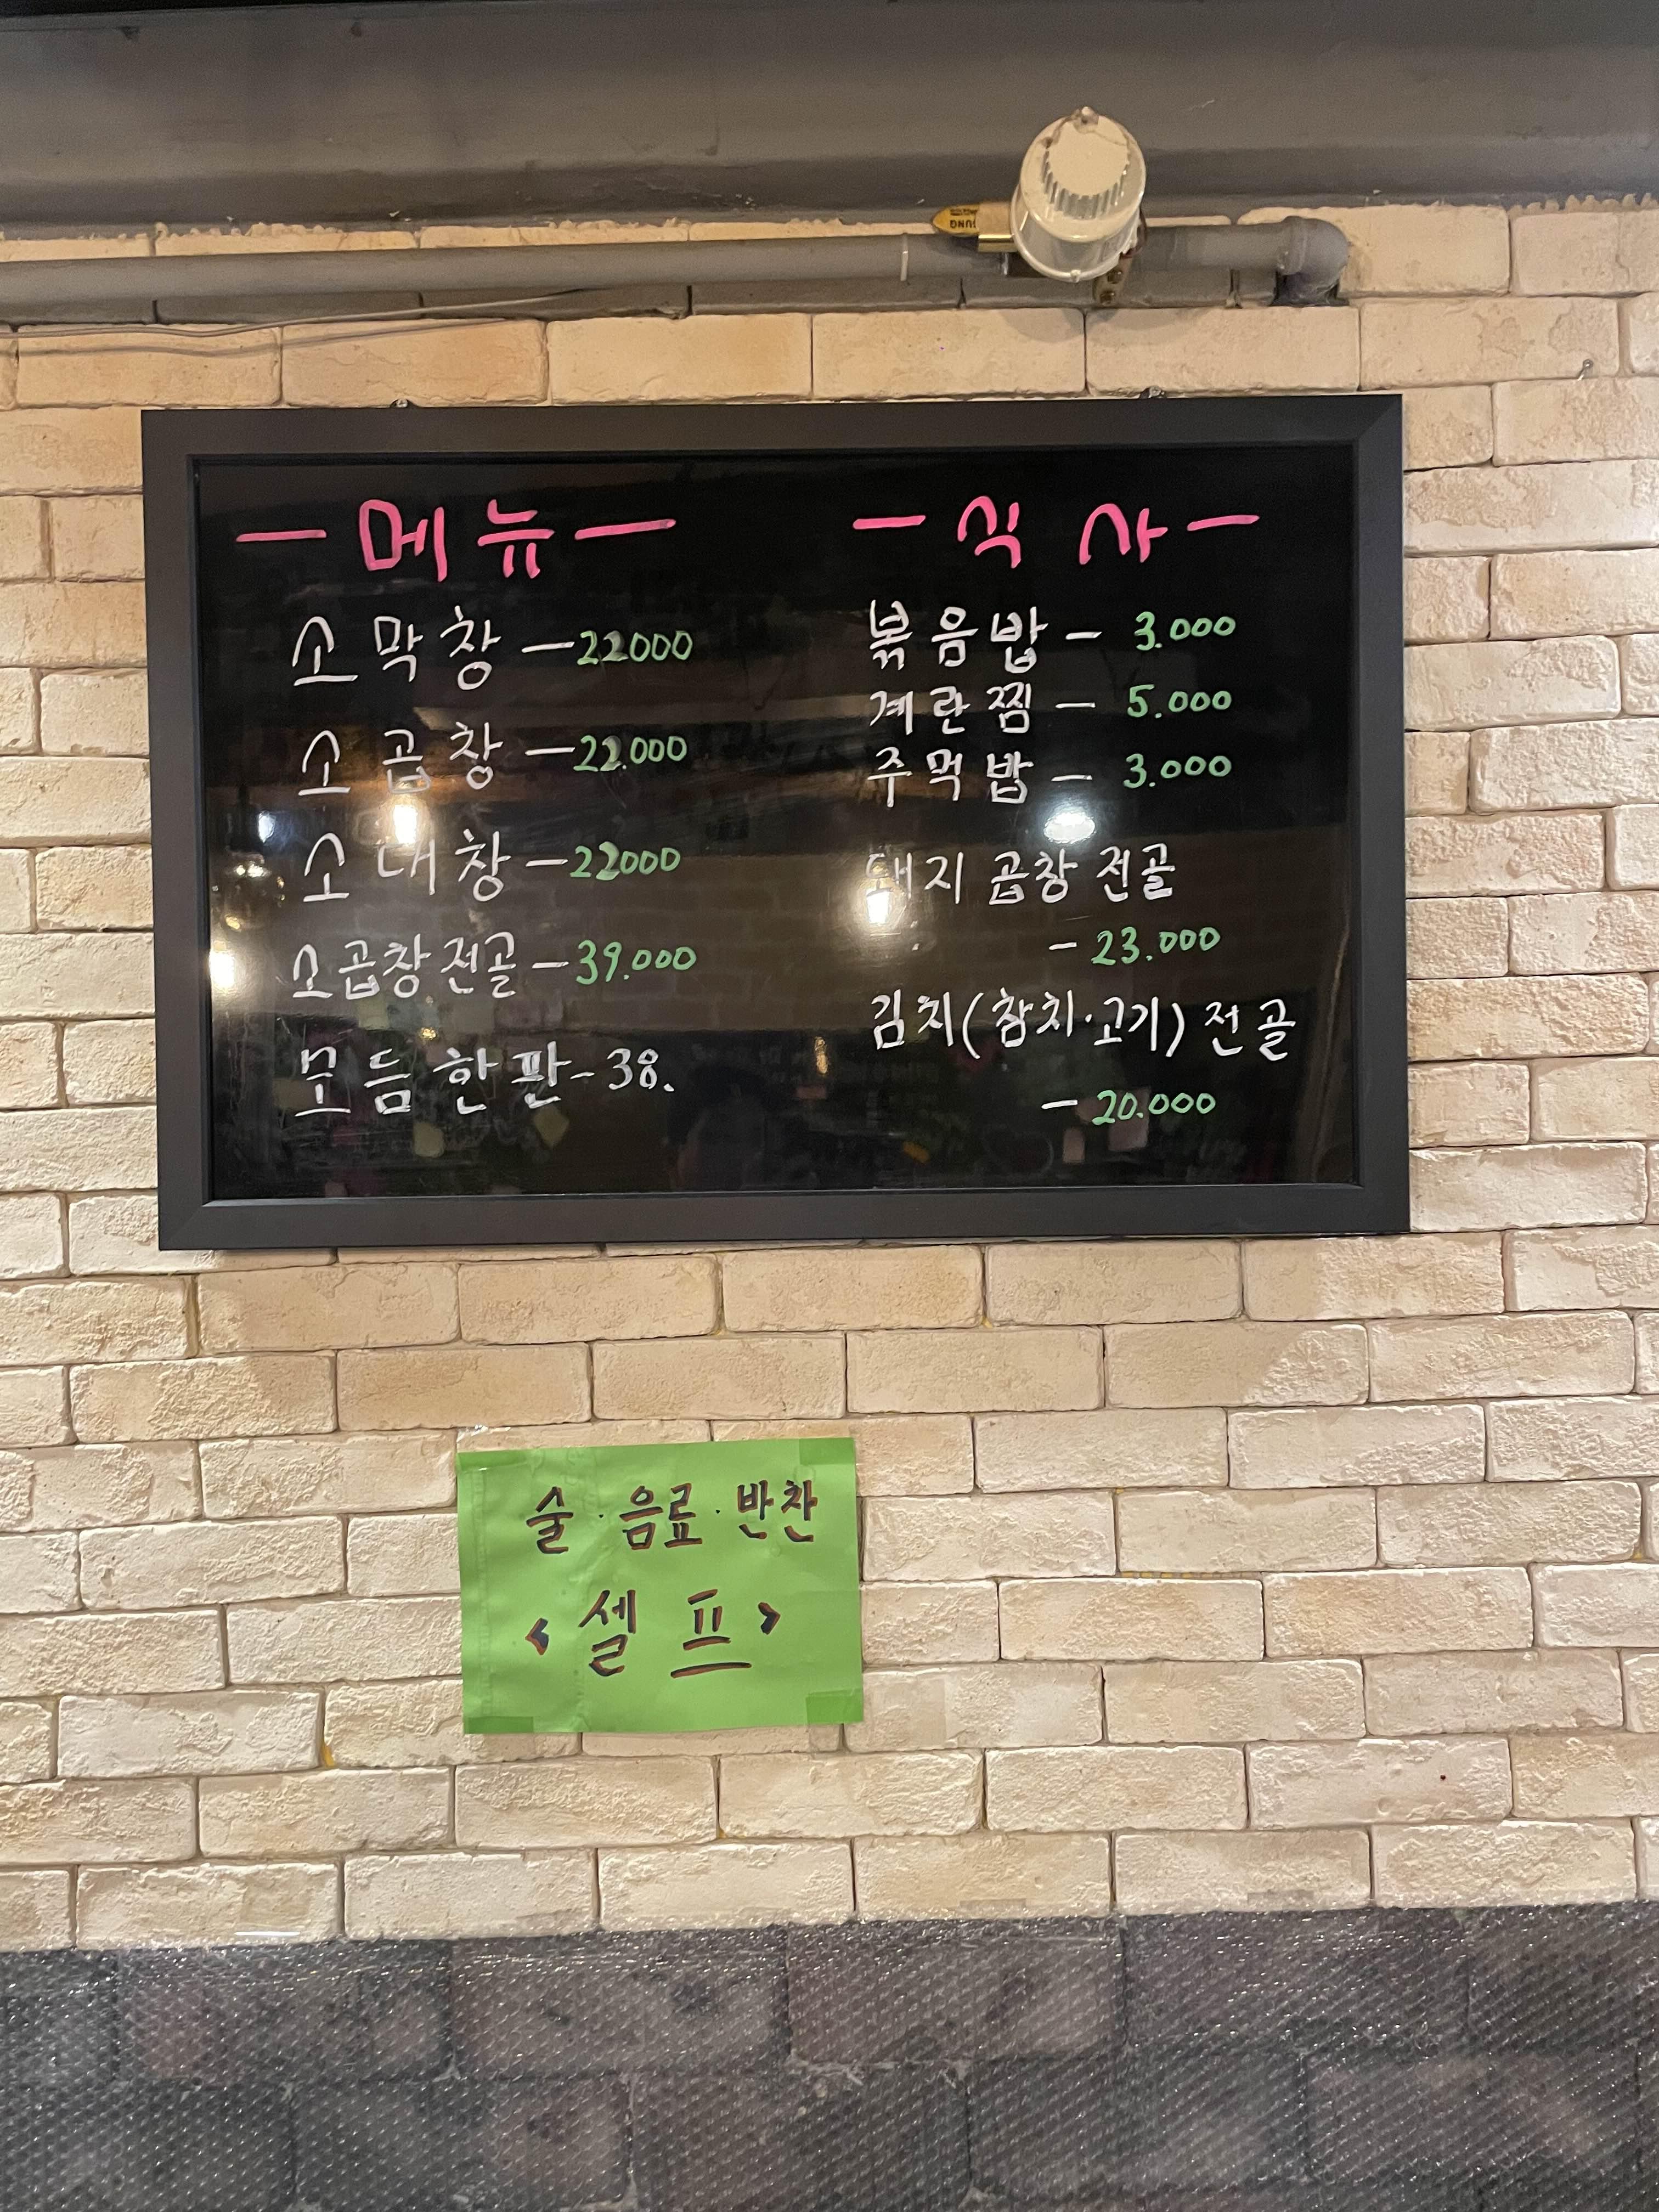 ㅡ 메뉴 ㅡ
소막창 - 22000
소곱창 - 22.000
소대창 - 22000
소곱창전골 - 39.000
모듬한판 - 38.
ㅡ 식사 ㅡ
볶음밥 - 3.000
계란찜 - 5.000
주먹밥 - 3.000
돼지 곱창 전골
- 23.000
김치(참치·고기) 전골
- 20.000
술·음료·반찬
<셀프>